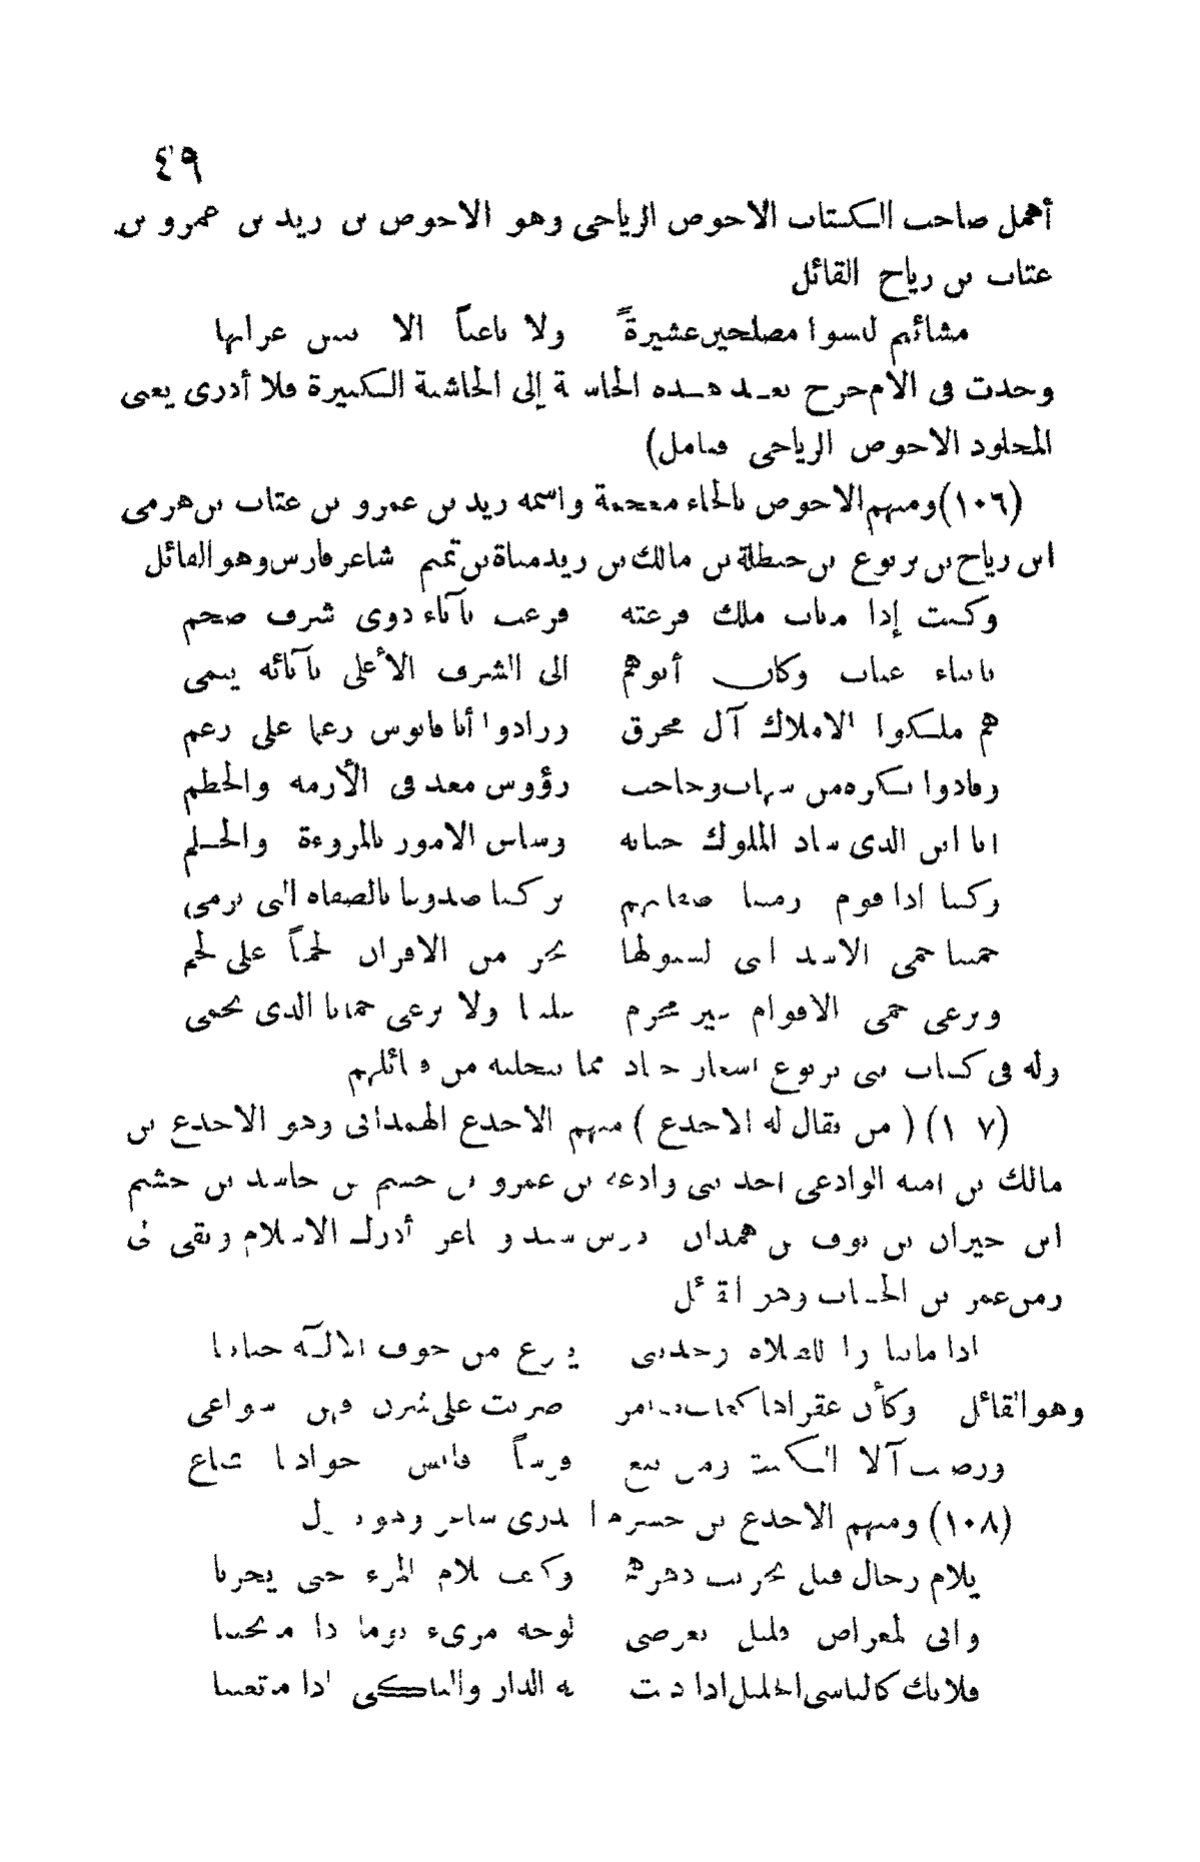 ٤٩
أهمل صاحب الكتاب الاحوص الرياحى وهو الاحوص بن زيد بن عمرو بن
عتاب بن رياح القائل
مشائيم ليسوا مصلحين عشيرةً ولا ناعباً الا ببين غرابها
وجدت فى الأم خرج بعد هذه الحاشية إلى الحاشية الكبيرة فلا أدرى يعنى
الاحوص الرياحى فتأمل)
(١٠٦) ومنهم الاخوص بالخاء معجمة واسمه زيد بن عمرو بن عتاب بن هرمى
ابن رياح بن يربوع بن حنظلة بن مالك بن زيد مناة بن تميم شاعر فارس وهو القائل
وكنت إذا ما باب ملك قرعته قرعت بآباء ذوى شرف ضخم
بابناء عتاب وكان أبوهم الى الشرف الأعلى بآبائه ينمى
هم ملكوا الاملاك آل محرق وزادوا أبا قابوس رغما على رغم
وقادوا بكره من شهاب وحاجب رؤوس معد فى الأزمة والخطم
انا ابن الذى ساد الملوك حياته وساس الامور بالمروءة والحلم
وكنا اذا قوم رمينا صفاتهم تركنا صدوعا بالصفاة التى نرمى
حمينا حمى الاسد التى لشبولها تجر من الاقران لحماً على لحم
ونرعى حمى الاقوام غير محرم علينا ولا يرعى حمانا الذى نحمى
وله فى كتاب بنى يربوع اشعار جياد مما تنخلته من قبائلهم
(١٠٧) (من يقال له الاجدع) منهم الاجدع الهمدانى وهو الاجدع بن
مالك بن امية الوادعى احد بنى وادعة بن عمرو بن جشم بن حاشد بن جشم
ابن خيران بن نوف بن همدان فارس سيد وشاعر أدرك الاسلام وبقى الى
زمن عمر بن الخطاب وهو القائل
وهو القائل وكأن عقراها كعاب مقامر ضربت على شزن فهن شواعى
ورضيت آلاء الكميت ومن يبع فرساً فليس جوادنا بمباع
(١٠٨) ومنهم الاجدع بن شاعر وهو القائل
يلام رجال قبل تجريب دهرهم وكيف يلام المرء حتى يجربا
وانى لمعراض قليل تعرضى لوجه امرىء يوما اذا ما تجنبا